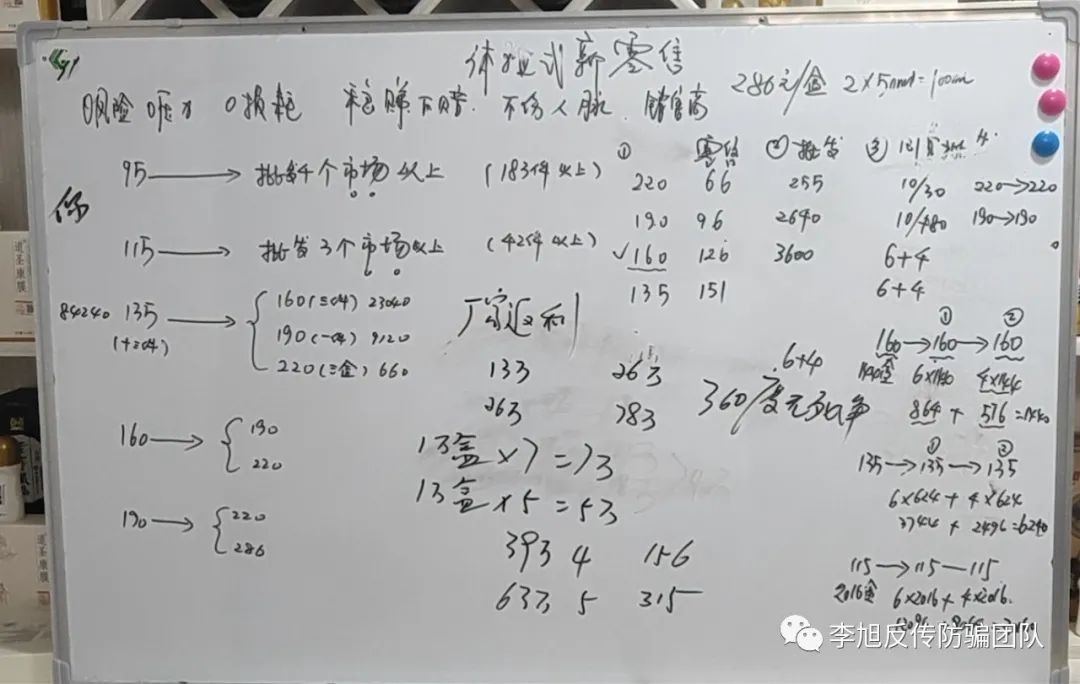 体验式新零售
0风险 0压力 0损耗 稳赚不赔. 不伤人脉. 286元/盒 2×5
你
95 → 批发4个市场以上 (183件以上)
115 → 批发3个市场以上 (42件以上)
84240 135 →
160 23040
190 9120
220 660
160 → 190
220
190 → 220
286
① 零售 ② 批发 ③
220 66 255 10/30 220→220
190 96 2640 10/480 190→190
✓160 126 3600 6+4
135 151 6+4
厂家返利
133 263
263 383
13盒×7=73
13盒×5=53
393 4 156
633 5 315
6+4
360度
① ②
160→160→160
864 + 576 =1440
① ②
135→135→135
6×624 + 4×624
3744 + 2496 =6240
115→115—115
2016盒 6×2016 + 4×2016.
李旭反传防骗团队
道圣康膜